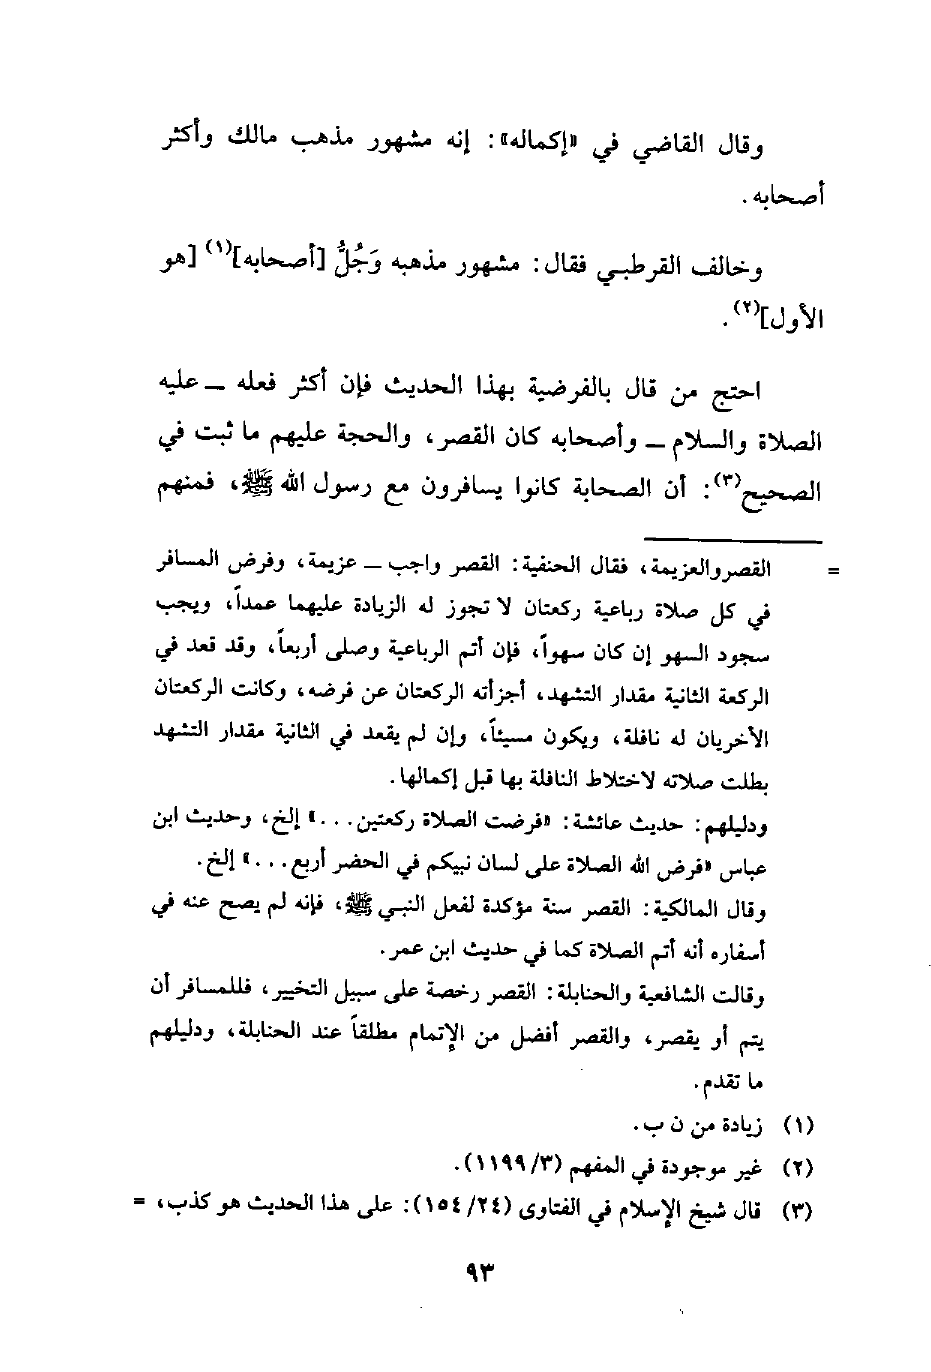 وقال القاضي في «إكماله»: إنه مشهور مذهب مالك وأكثر
أصحابه.
وخالف القرطبي فقال: مشهور مذهبه وَجُلُّ [أصحابه]⁽¹⁾ [هو
الأول]⁽²⁾.
احتج من قال بالفرضية بهذا الحديث فإن أكثر فعله ــ عليه
الصلاة والسلام ــ وأصحابه كان القصر، والحجة عليهم ما ثبت في
الصحيح⁽³⁾: أن الصحابة كانوا يسافرون مع رسول الله ﷺ، فمنهم
= القصر والعزيمة، فقال الحنفية: القصر واجب ــ عزيمة، وفرض المسافر
في كل صلاة رباعية ركعتان لا تجوز له الزيادة عليهما عمداً، ويجب
سجود السهو إن كان سهواً، فإن أتم الرباعية وصلى أربعاً، وقد قعد في
الركعة الثانية مقدار التشهد، أجزأته الركعتان عن فرضه، وكانت الركعتان
الأخريان له نافلة، ويكون مسيئاً، وإن لم يقعد في الثانية مقدار التشهد
بطلت صلاته لاختلاط النافلة بها قبل إكمالها.
ودليلهم: حديث عائشة: «فرضت الصلاة ركعتين...» إلخ، وحديث ابن
عباس «فرض الله الصلاة على لسان نبيكم في الحضر أربع...» إلخ.
وقال المالكية: القصر سنة مؤكدة لفعل النبي ﷺ، فإنه لم يصح عنه في
أسفاره أنه أتم الصلاة كما في حديث ابن عمر.
وقالت الشافعية والحنابلة: القصر رخصة على سبيل التخيير، فللمسافر أن
يتم أو يقصر، والقصر أفضل من الإتمام مطلقاً عند الحنابلة، ودليلهم
ما تقدم.
(١) زيادة من ن ب.
(٢) غير موجودة في المفهم (٣/ ١١٩٩).
(٣) قال شيخ الإسلام في الفتاوى (٢٤/ ١٥٤): على هذا الحديث هو كذب، =
٩٣